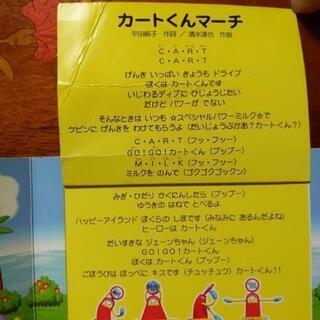 カートくんマーチ
平田純子 作詞 / 清水達也 作曲
C・A・R・T
C・A・R・T
げんき いっぱい きょうも ドライブ
ぼくは カートくんです
いじわるディプに ひじょうじたい
だけど パワーが でない
そんなときは いつも ☆スペシャルパワーミルク☆で
ケビンに げんきを わけてもらうよ(だいじょうぶかあ?カートくん?)
C・A・R・T(フッ・フー)
GO!GO!カートくん(プップー)
M・I・L・K(フッ・フー)
ミルクを のんで(ゴクゴクゴックン)
みぎ・ひだり かくにんしたら(プップー)
ゆうきの はねで とべるよ
ハッピーアイランド ぼくらの しまです(みなみに あるんだよね)
ヒーローは カートくん
だいすきな ジェーンちゃん(ジェーンちゃん)
GO!GO!カートくん(プップー)
ぼくは カートくん(プップー)
ごほうびは ほっぺに キスです(チュッチュウ)カートくん!!